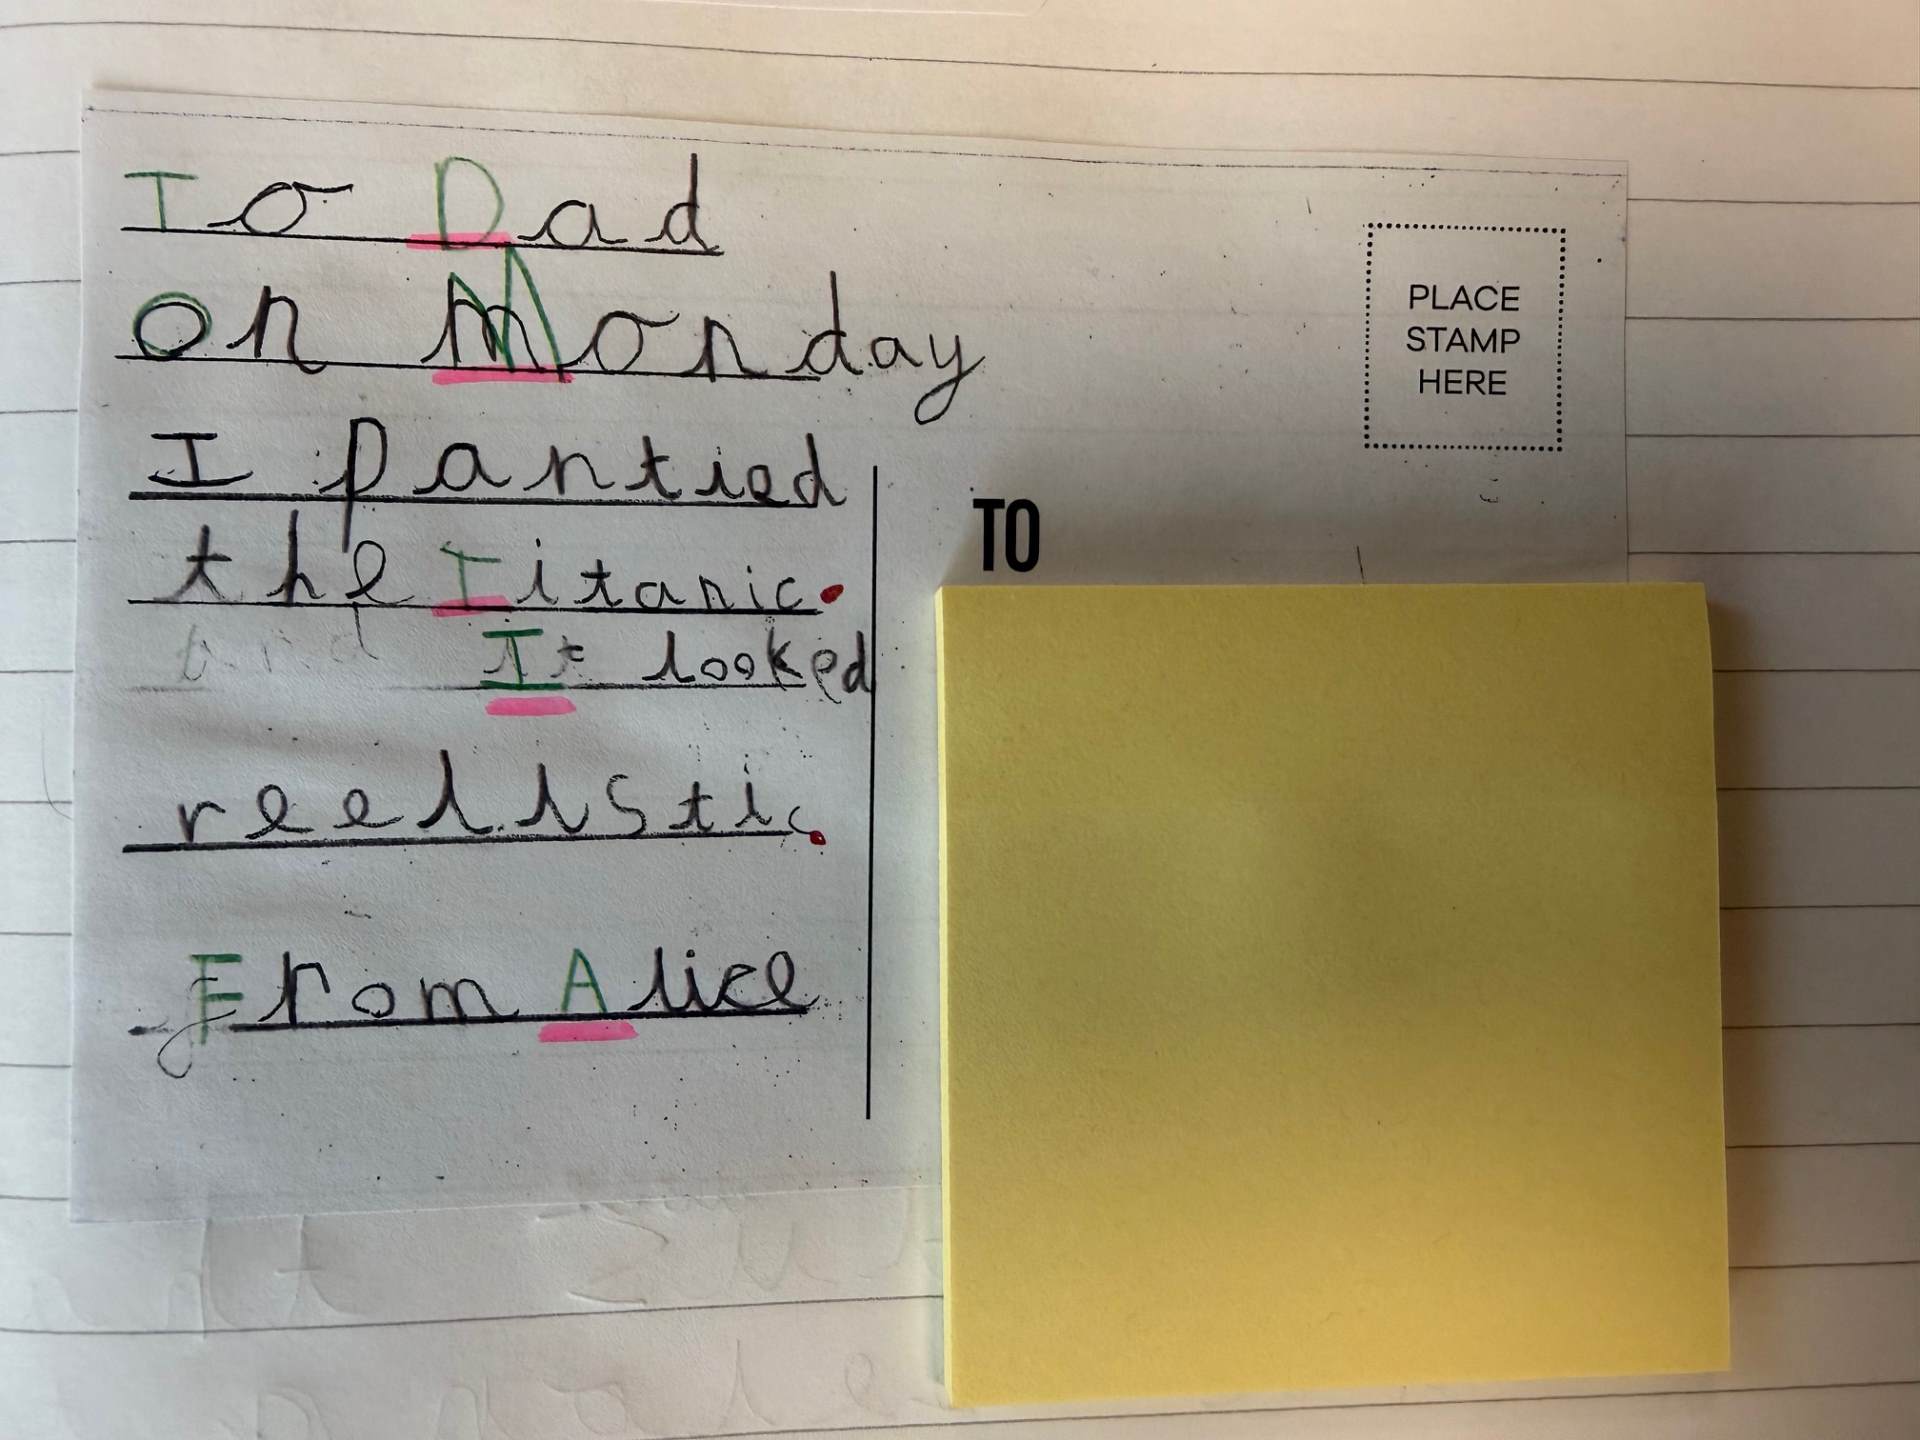 To Dad
On Monday
I pantied
the Titanic.
and It looked
reelistic.
From Alice
PLACE
STAMP
HERE
TO